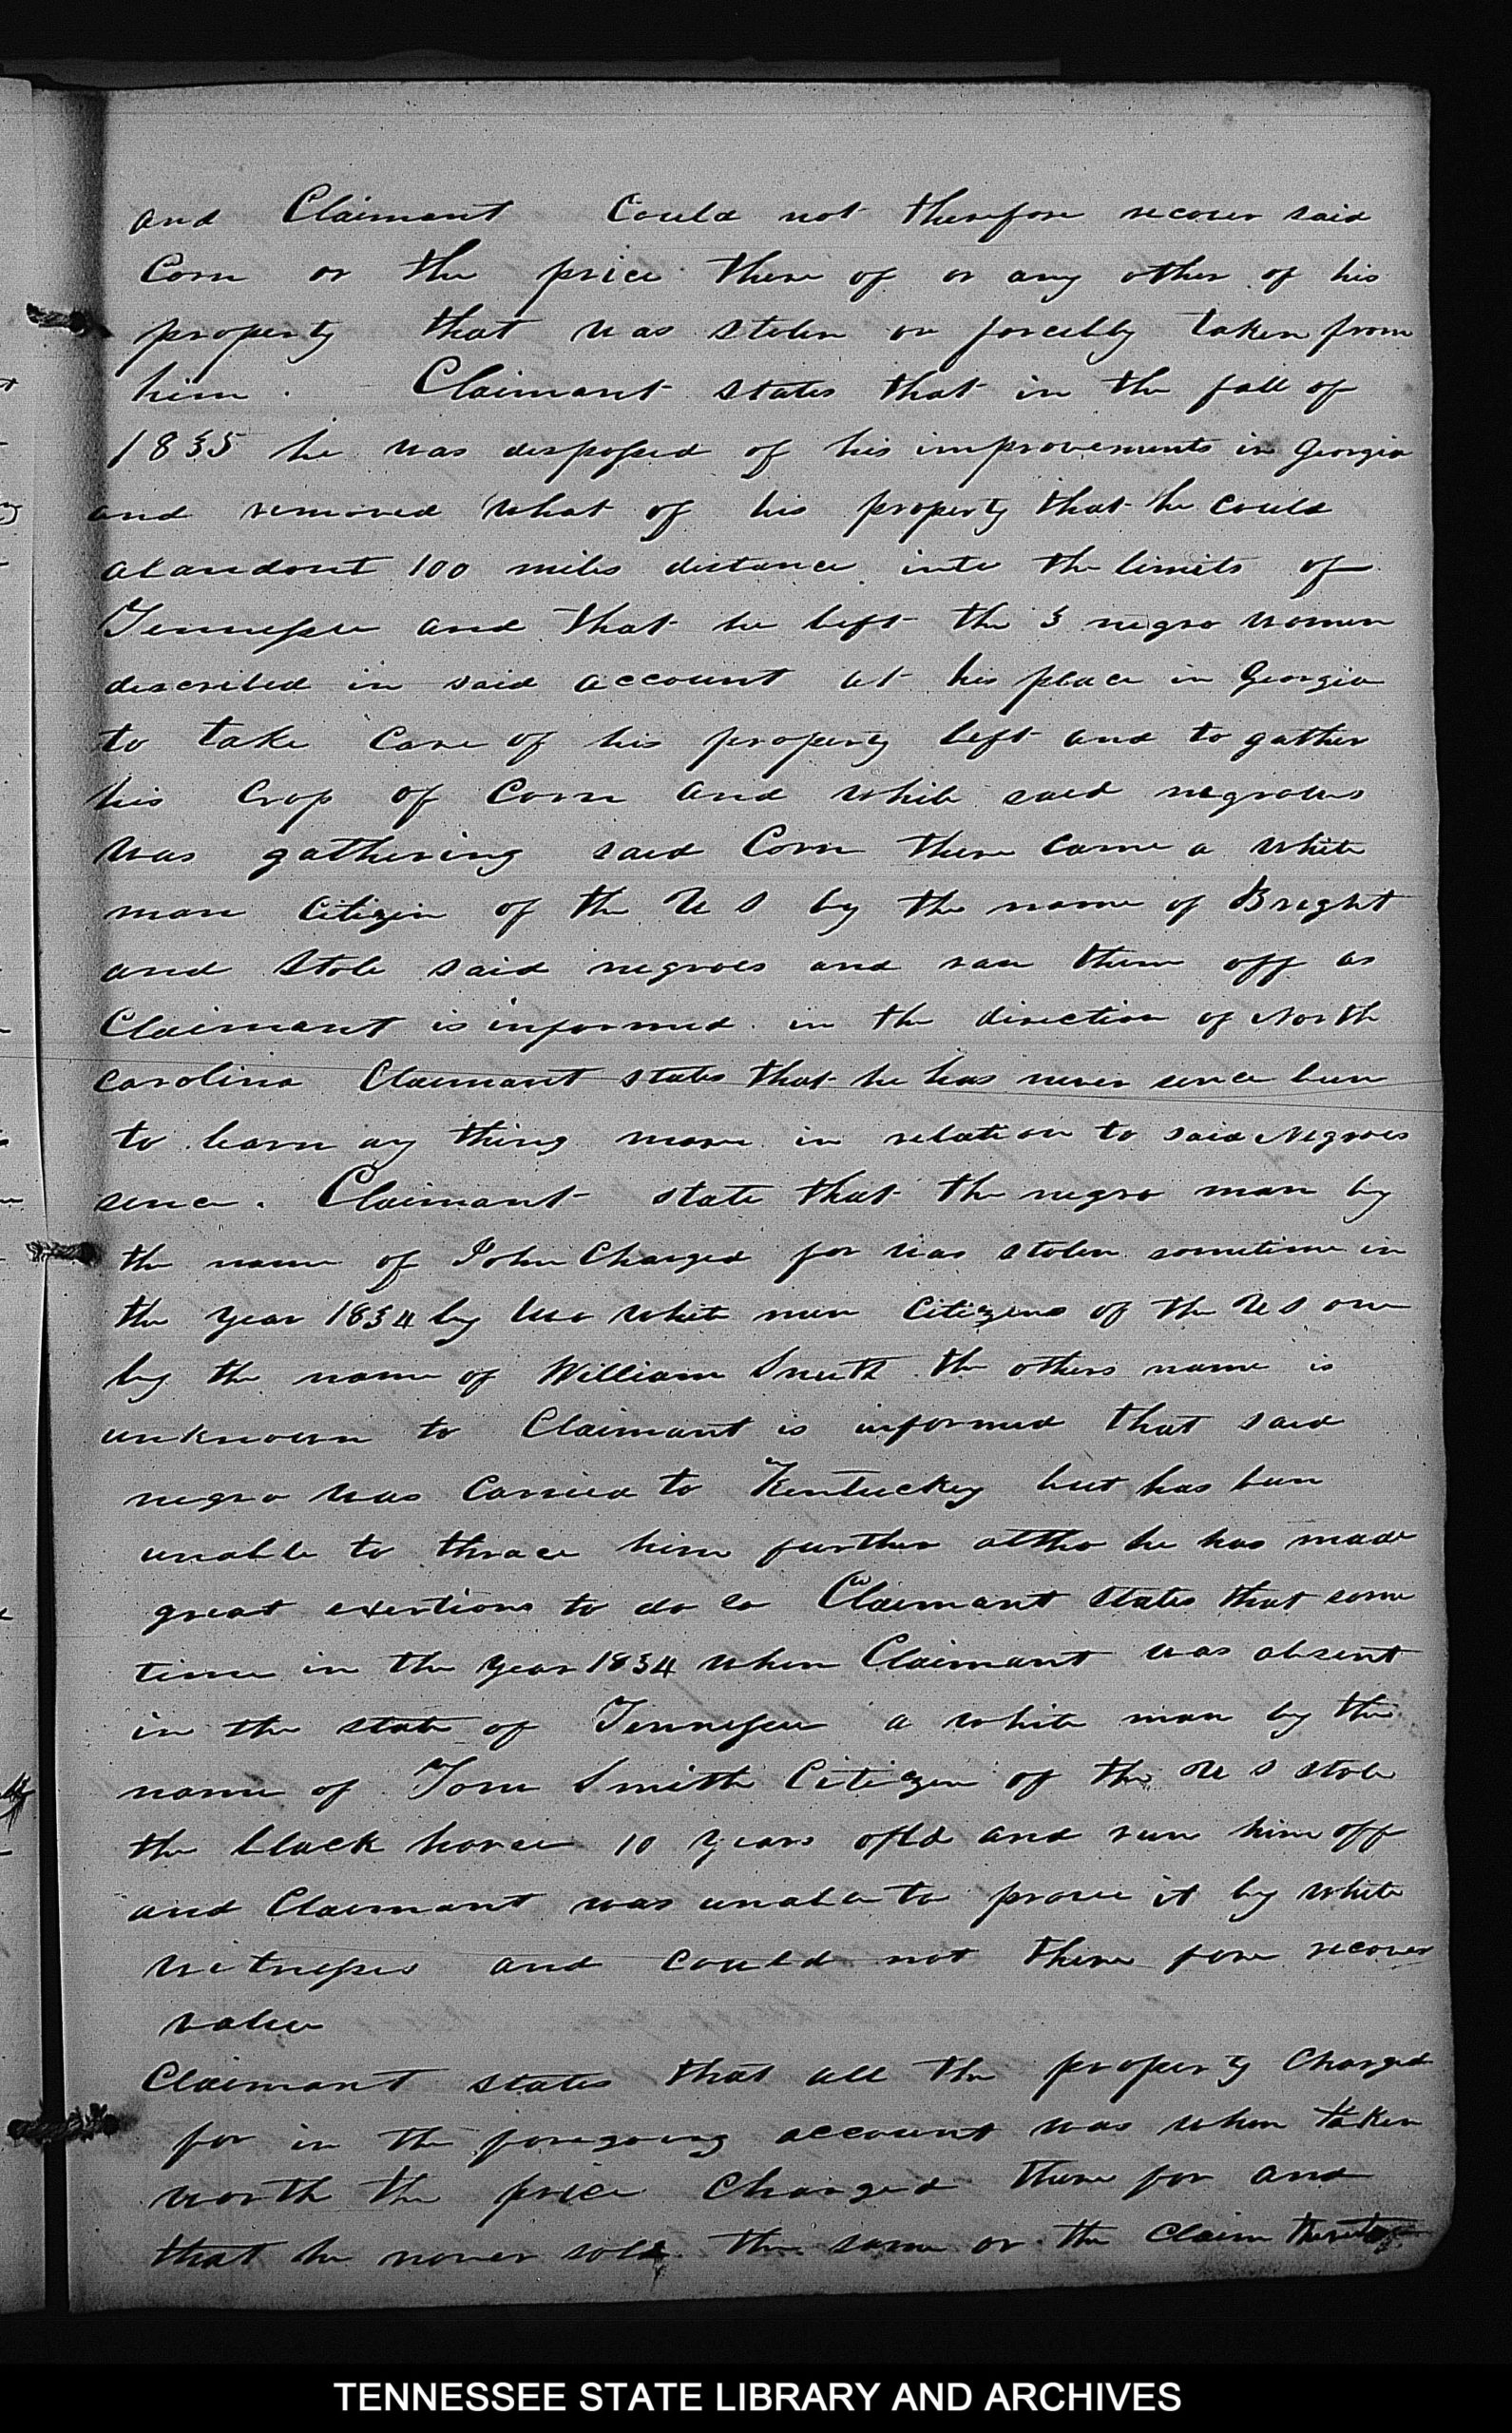 and Claimant Could not therefore recover said
Corn or the price there of or any other of his
property that was stolen or forcebly taken from
him. Claimant states that in the fall of
1835 he was dispossed of his improvements in Georgia
and removed what of his property that he could
abandont 100 miles distance into the limits of
Tennessee and that he left the 3 negro women
described in said account at his place in Georgia
to take Care of his property left and to gather
his Crop of Corn and while said negroes
was gathering said Corn there Came a white
man Citizin of the U S by the name of Bright
and Stole said negroes and ran them off as
Claimant is informed in the direction of North
Carolina Claimant states that he has never since been
to learn any thing more in relation to said Negroes
sence. Claimant state that the negro man by
the name of John Charged for was stolen sometime in
the year 1834 by two white men Citizens of the U S one
by the name of William Smith the others name is
unknown to Claimant is informed that said
negro was Carried to Kentucky but has been
unable to thrace him further altho he has made
great exertions to do so Claimant states that some
time in the year 1834 when Claimant was absent
in the state of Tennessee a white man by the
name of Tom Smith Citizen of the U S stole
the black horse 10 years old and run him off
and Claimant was unable to prove it by white
witnesses and could not there fore recover
value
Claimant states that all the property Charged
for in the foregoing account was when taken
worth the price Charged there for and
that he never sold the same or the Claim thereto
TENNESSEE STATE LIBRARY AND ARCHIVES